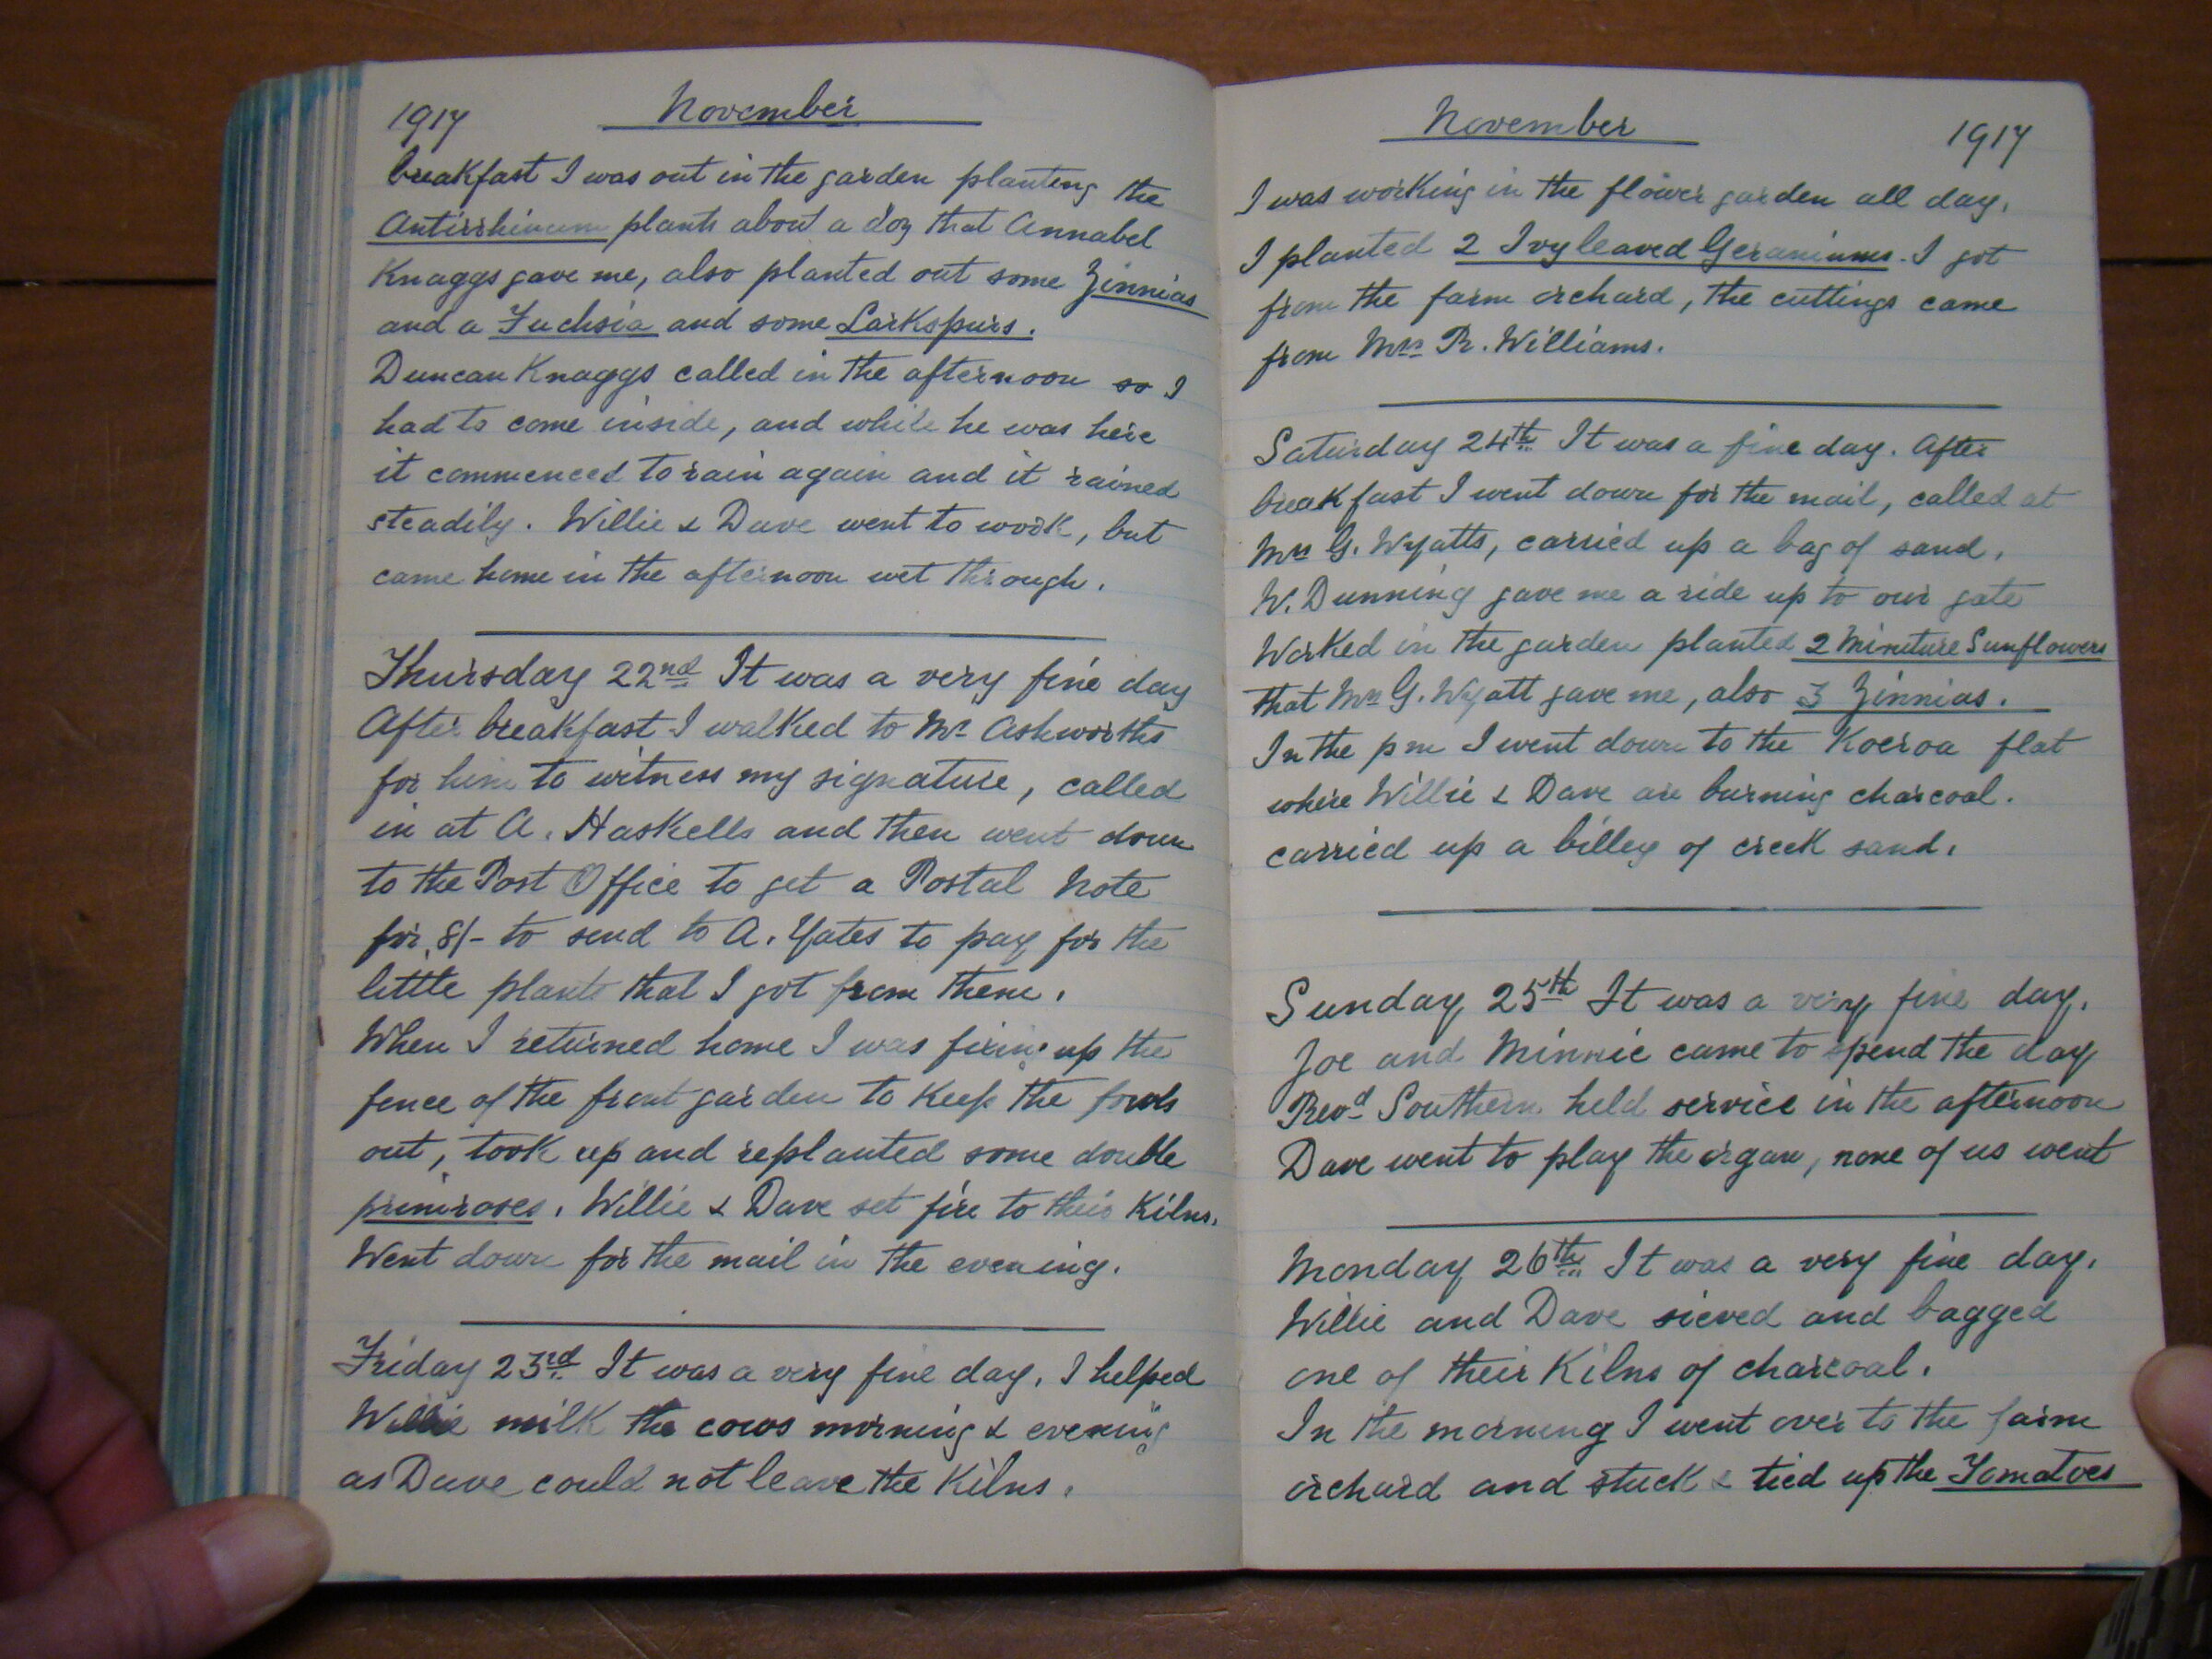 1917 November
breakfast I was out in the garden planting the
Antirrhinum plants about a doz that Annabel
Knaggs gave me, also planted out some Zinnias
and a Fuchsia and some Larkspurs.
Duncan Knaggs called in the afternoon so I
had to come inside, and while he was here
it commenced to rain again and it rained
steadily. Willie & Dave went to work, but
came home in the afternoon wet through.
Thursday 22nd It was a very fine day
After breakfast I walked to Mr Ashworths
for him to witness my signature, called
in at A. Haskells and then went down
to the Post Office to get a Postal Note
for 8/- to send to A. Yates to pay for the
little plants that I got from them.
When I returned home I was fixing up the
fence of the front garden to keep the fowls
out, took up and replanted some double
primroses. Willie & Dave set fire to their Kilns.
Went down for the mail in the evening.
Friday 23rd It was a very fine day. I helped
Willie milk the cows morning & evening
as Dave could not leave the Kilns.
November 1917
I was working in the flower garden all day,
I planted 2 Ivy leaved Geraniums. I got
from the farm orchard, the cuttings came
from Mrs R. Williams.
Saturday 24th It was a fine day. After
breakfast I went down for the mail, called at
Mrs G. Wyatts, carried up a bag of sand,
W. Dunning gave me a ride up to our gate
Worked in the garden planted 2 Minuture Sunflowers
that Mrs G. Wyatt gave me, also 3 Zinnias.
In the pm I went down to the Koeroa flat
where Willie & Dave are burning charcoal.
carried up a billey of creek sand.
Sunday 25th It was a very fine day.
Joe and Minnie came to spend the day
Revd Southern held service in the afternoon
Dave went to play the organ, none of us went
Monday 26th It was a very fine day.
Willie and Dave sieved and bagged
one of their Kilns of charcoal.
In the morning I went over to the farm
orchard and stuck & tied up the Tomatoes